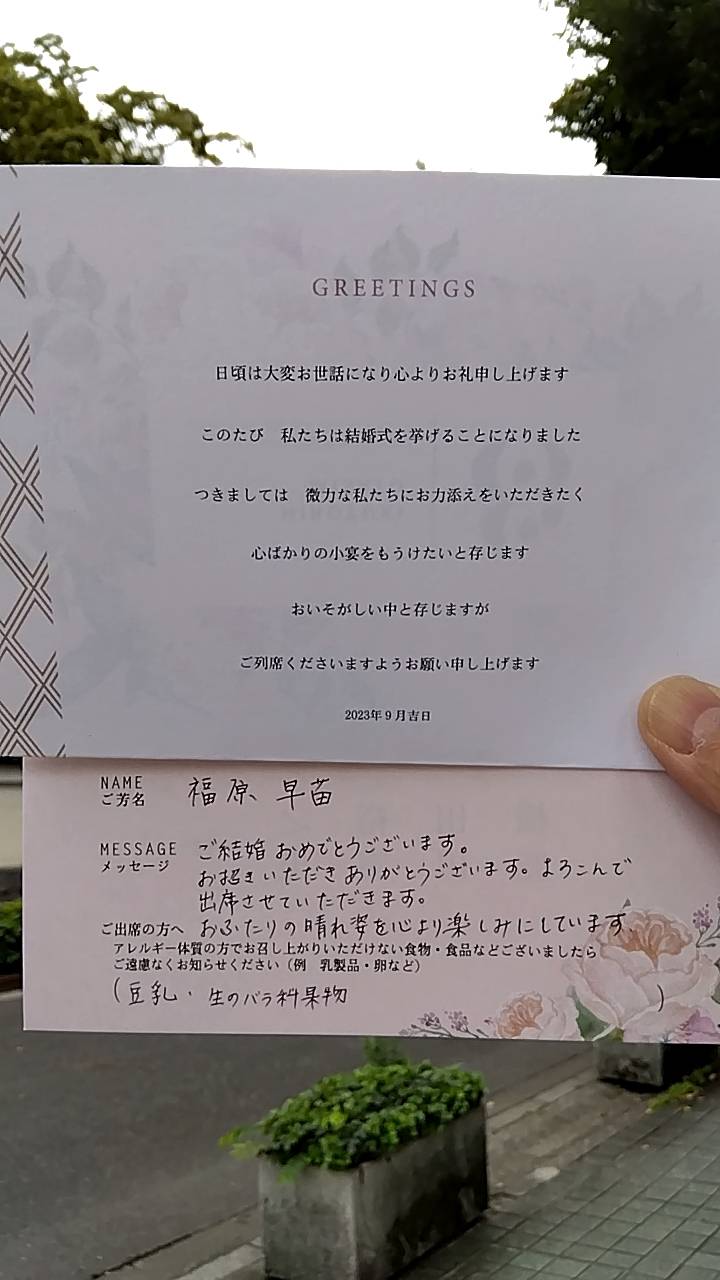 GREETINGS
日頃は大変お世話になり心よりお礼申し上げます
このたび　私たちは結婚式を挙げることになりました
つきましては　微力な私たちにお力添えをいただきたく
心ばかりの小宴をもうけたいと存じます
おいそがしい中と存じますが
ご列席くださいますようお願い申し上げます
2023年9月吉日
NAME
ご芳名 福原 早苗
MESSAGE
メッセージ
ご結婚おめでとうございます。
お招きいただきありがとうございます。よろこんで
出席させていただきます。
おふたりの晴れ姿を心より楽しみにしています。
ご出席の方へ
アレルギー体質の方でお召し上がりいただけない食物・食品などございましたら
ご遠慮なくお知らせください（例　乳製品・卵など）
（豆乳・生のバラ科果物　）